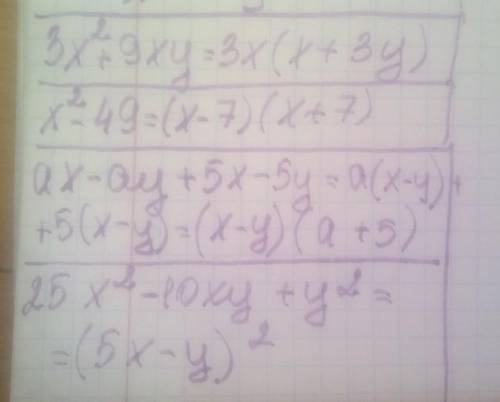 3x²+9xy=3x(x+3y)
x²-49=(x-7)(x+7)
ax-ay+5x-5y=a(x-y)+
+5(x-y)=(x-y)(a+5)
25x²-10xy+y²=
=(5x-y)²